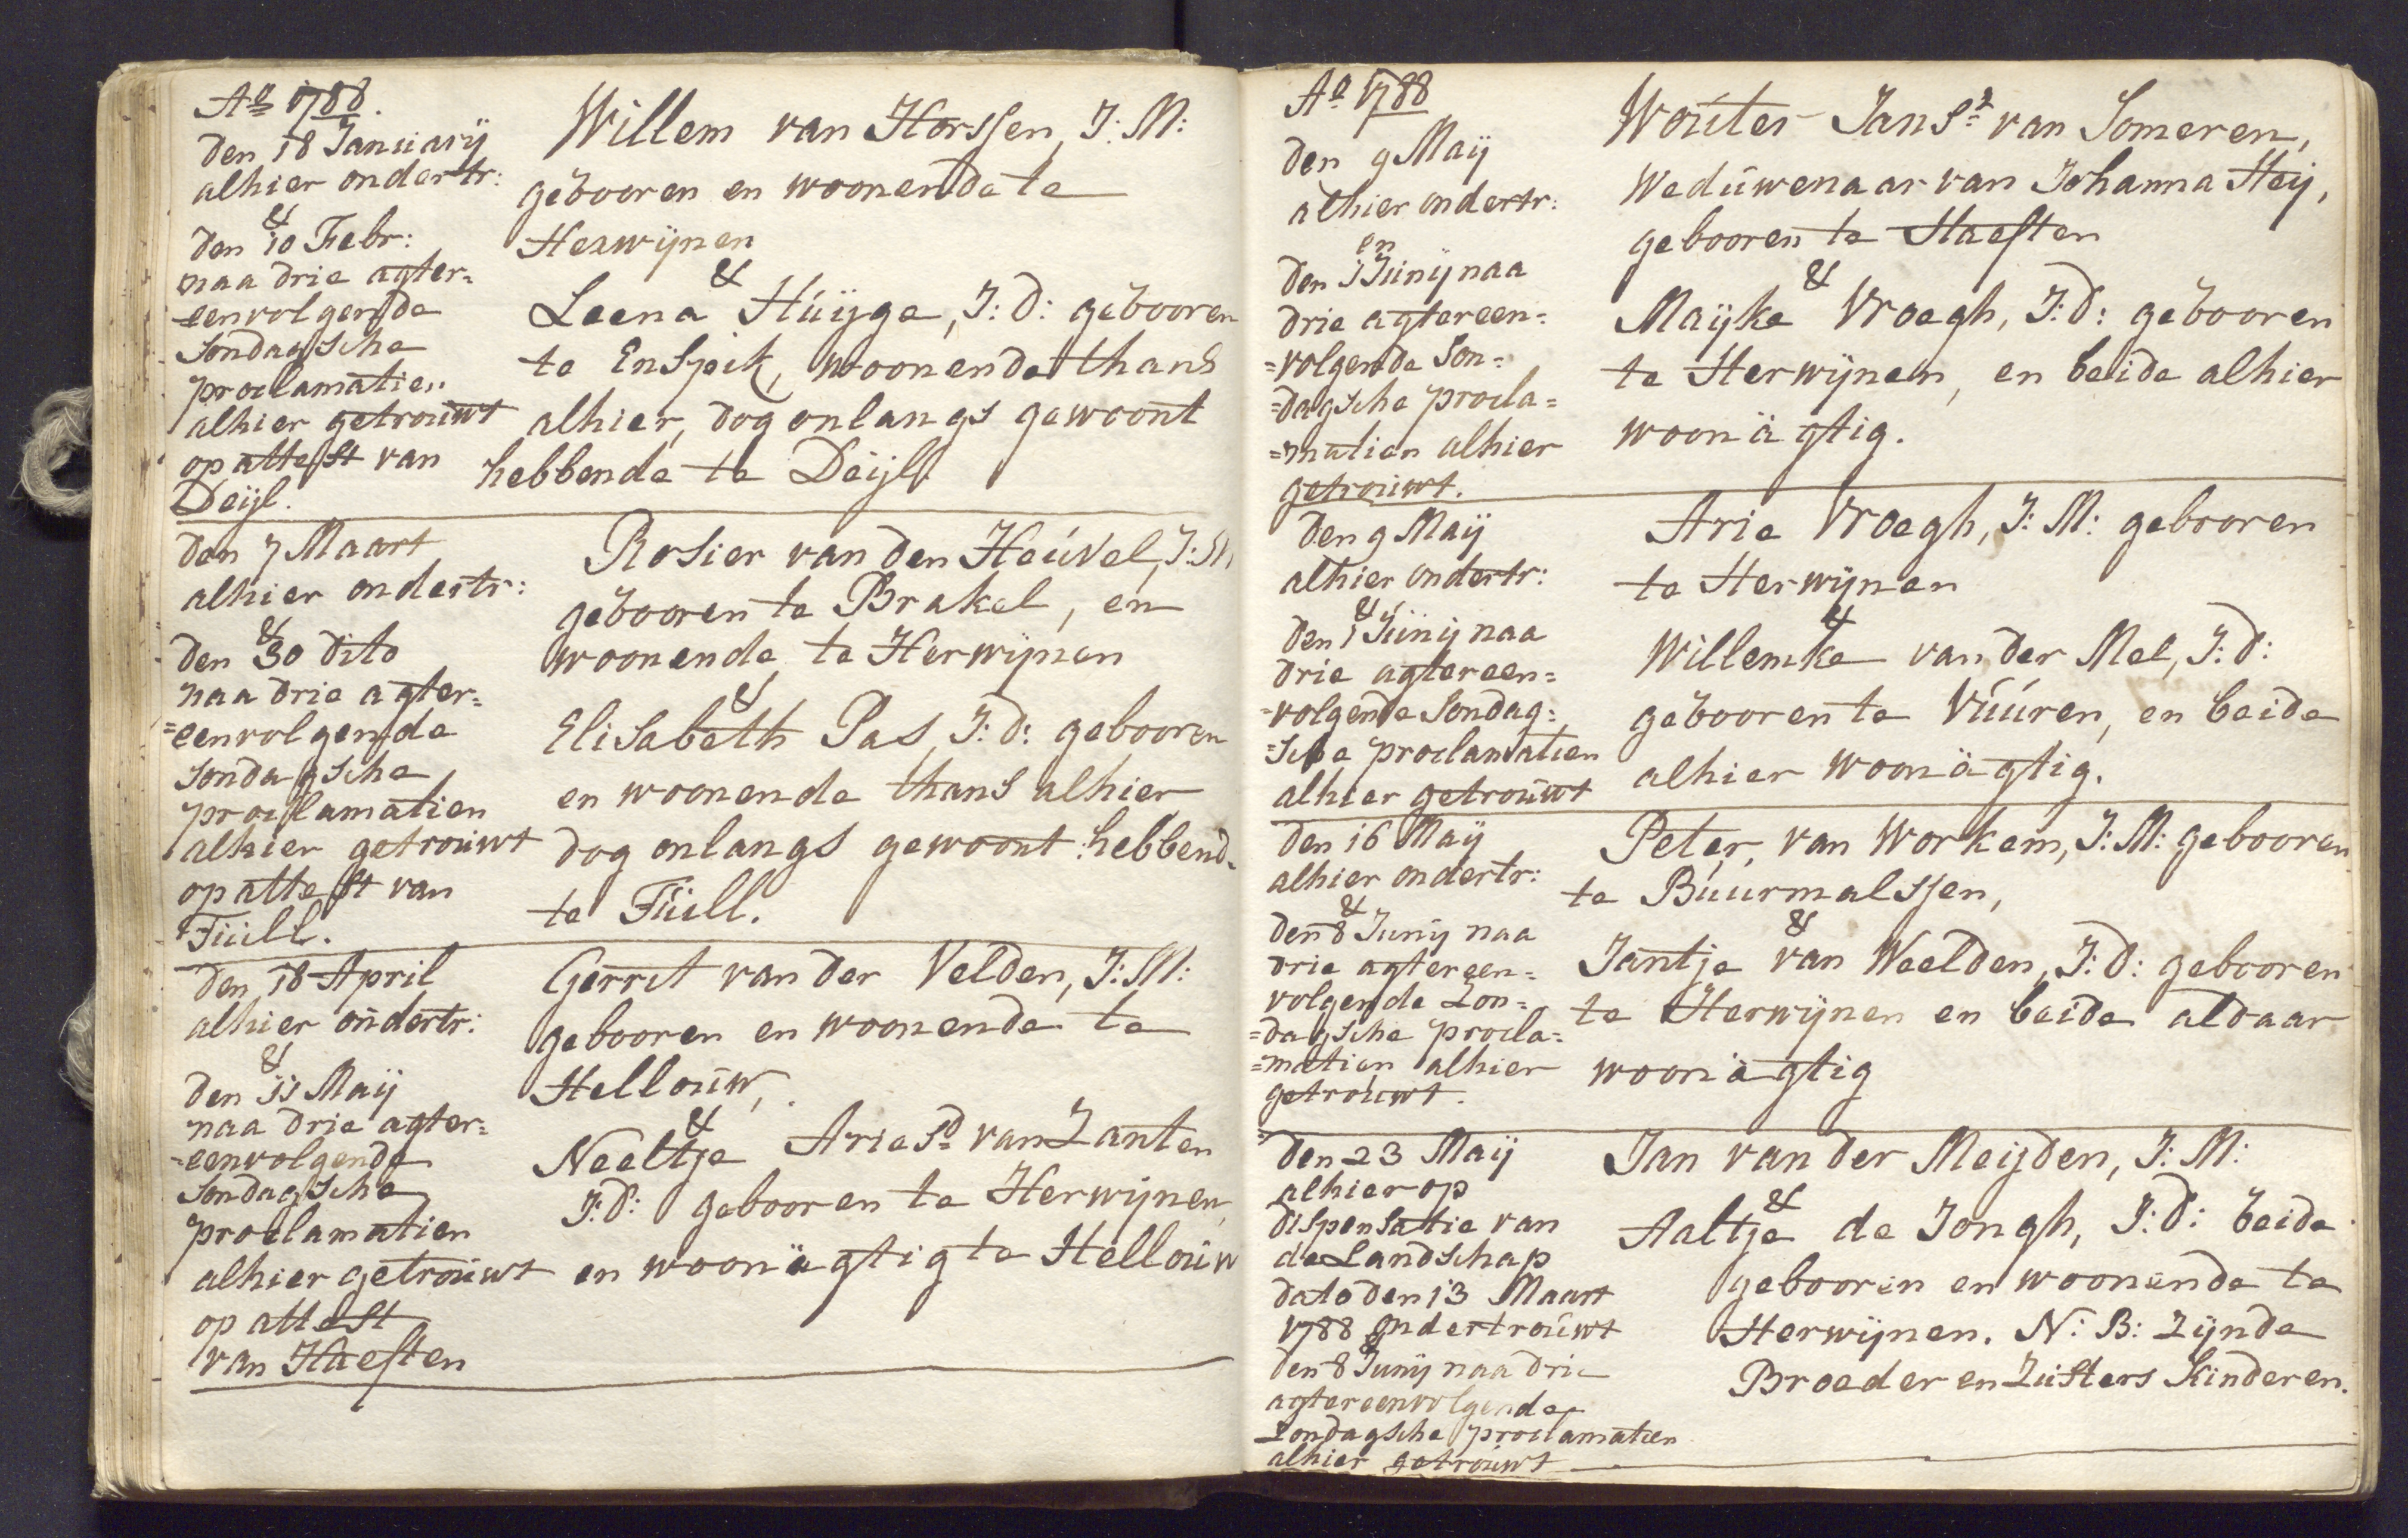 Ao 1788.
den 18 January
alhier ondertr:
&
den 10 Febr:
naa drie agter=
eenvolgende
Sondagsche
proclamatien
alhier getrouwt
op attest van
Deijl.
Willem van Horssen, J: M:
gebooren en woonende te
Herwijnen
&
Leena Huijge, J: D: gebooren
te Enspik, woonende thans
alhier, dog onlangs gewoont
hebbende te Deijl
den 7 Maart
alhier ondertr:
&
den 30 dito
naa drie agter=
=eenvolgende
Sondagsche
proclamatien
alhier getrouwt
op attest van
Tuil.
Rosier van den Heuvel, J: M
gebooren te Brakel, en
woonende te Herwijnen
&
Elisabeth Pas, J: D: gebooren
en woonende thans alhier
dog onlangs gewoont hebbend
te Tuill.
den 18 April
alhier ondertr:
&
den 11 Maij
naa drie agter=
=eenvolgende
Sondagsche
proclamatien
alhier getrouwt
op attest
van Haeften
Gerrit van der Velden, J: M:
gebooren en woonende te
Hellouw,
&
Neeltje Aries.d van Zanten
J: D: gebooren te Herwijnen,
en woonägtig te Hellouw
Ao 1788
den 9 Maij
alhier ondertr:
en
den 1 Junij naa
drie agtereen=
=volgende Son=
=dagsche procla=
=matien alhier
getrouwt.
Wouter Jans.z van Someren,
Weduwenaar van Johanna Heij,
gebooren te Haeften
&
Maijke Vroegh, J: D: gebooren
te Herwijnen, en beide alhier
woonägtig.
den 9 Maij
alhier ondertr:
&
den 1 Junij naa
drie agtereen=
=volgende Sondag=
=sche proclamatien
alhier getrouwt
Arie Vroegh, J: M: gebooren
te Herwijnen
&
Willemke van der Mel, J: D:
gebooren te Vuuren, en beide
alhier woonägtig.
den 16 Maij
alhier ondertr:
&
den 8 Junij naa
drie agtereen=
volgende Zon=
=dagsche procla=
=matien alhier
getrouwt.
Peter, van Workem, J: M: gebooren
te Buurmalssen,
&
Jantje van Weelden, J: D: gebooren
te Herwijnen en beide aldaar
woonägtig
den 23 Maij
alhier op
dispensatie van
de Landschap
dato den 13 Maart
1788 ondertrouwt
&
den 8 Junij naa drie
agtereenvolgende
Zondagsche proclamatien
alhier getrouwt
Jan van der Meijden, J: M:
&
Aaltje de Jongh, J: D: beide
gebooren en woonende te
Herwijnen. N: B: Zijnde
Broeder en Zusters Kinderen.